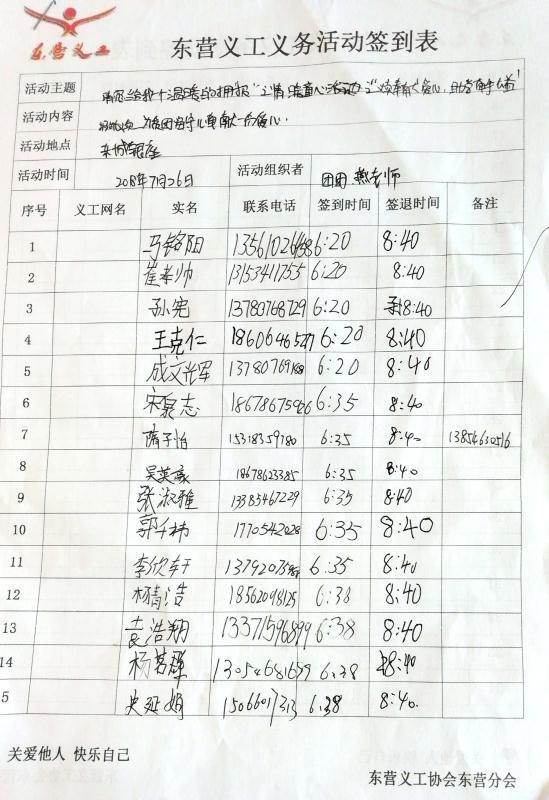 东营义工
东营义工义务活动签到表
活动主题
活动内容
活动地点
活动时间 2018年7月26日 活动组织者 团团 燕老师
序号 义工网名 实名 联系电话 签到时间 签退时间 备注
1 马铭阳 6:20 8:40
2 崔孝帅 13153411755 6:20 8:40
3 孙宪 13780768729 6:20 8:40
4 王克仁 18606465277 6:20 8:40
5 成文光军 6:20 8:40
6 宋泉志 6:35 8:40
7 隋子怡 15318359780 6:35 8:40 13854630516
8 吴英豪 18678623385 6:35 8:40
9 张淑雅 13385467229 6:35 8:40
10 郭千祎 6:35 8:40
11 李欣轩 6:35 8:40
12 杨青浩 18562098125 6:38 8:40
13 袁浩翔 13371596899 6:38 8:40
14 杨茗雅 13054681659 6:38 8:40
5 史延娟 15066017313 6:38 8:40.
关爱他人 快乐自己
东营义工协会东营分会